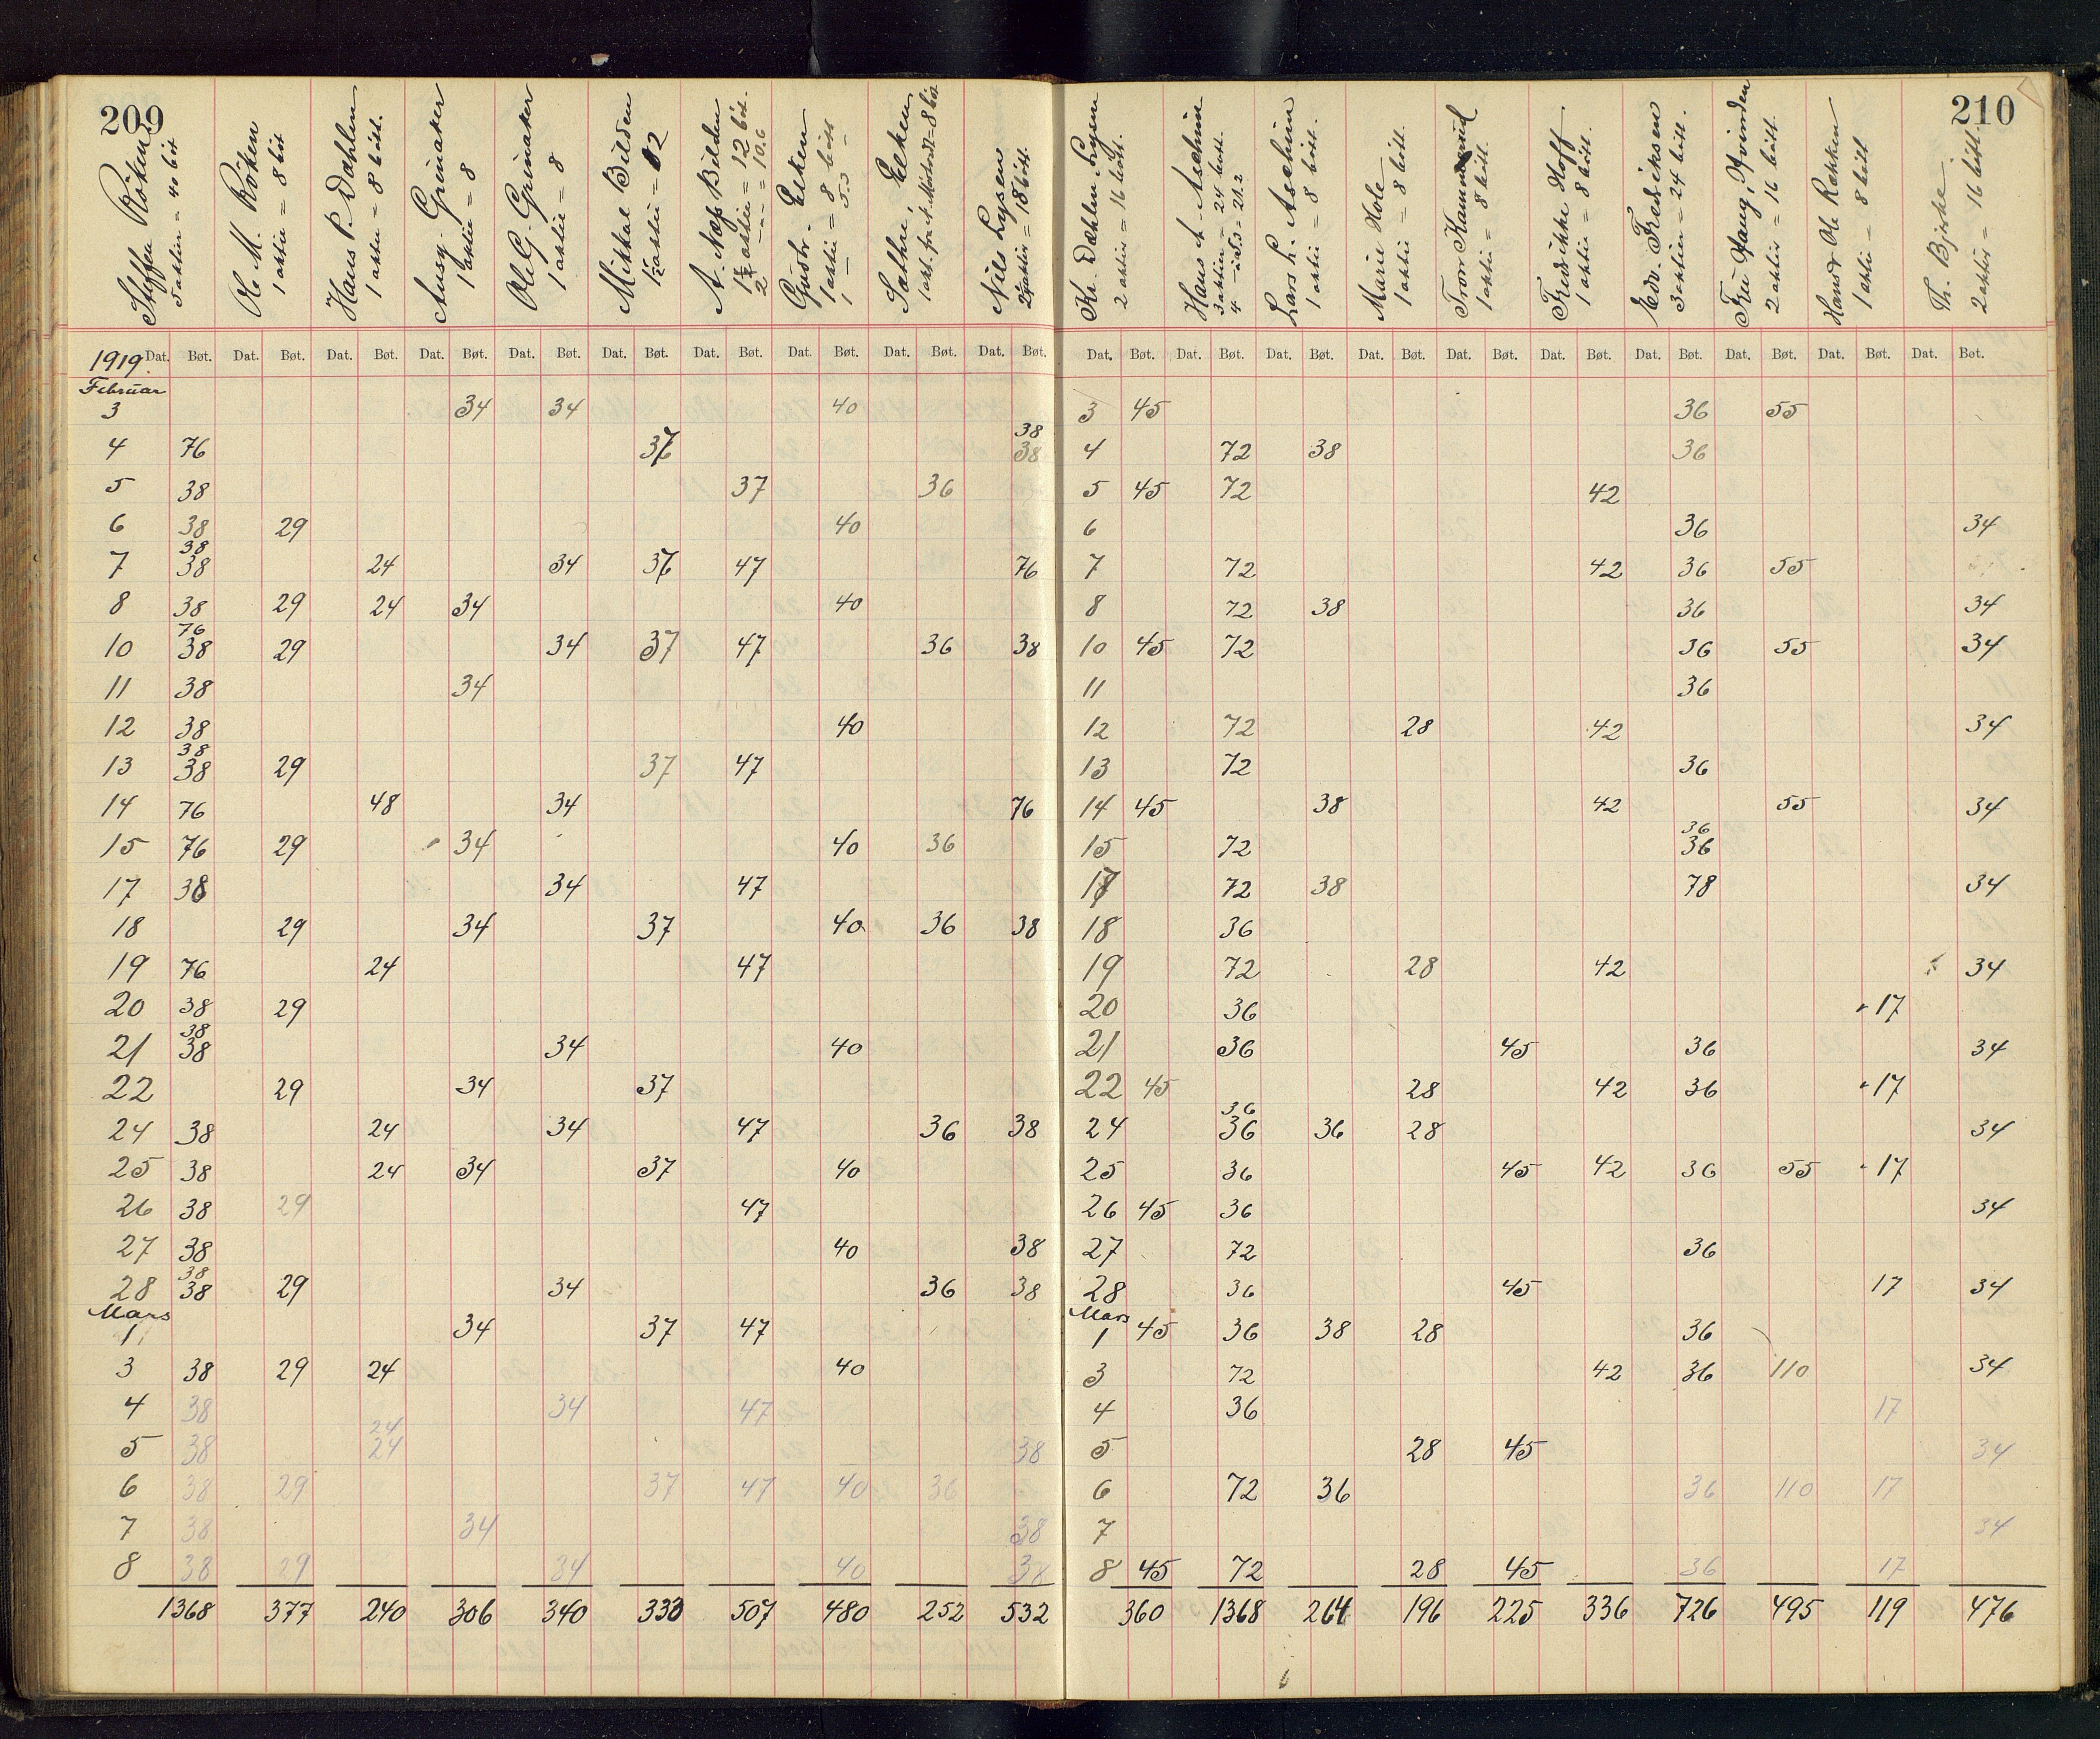 209
Steffen Röken 5 aktier = 40 bøt
Ole M. Röken 1 aktie = 8 bøt
Hans P. Dæhlen 1 aktie = 8 bøtt.
Ausg. Grinaker 1 aktie = 8
Ole G. Grinaker 1 aktie = 8
Mikkal Bilden 1½ aktie = 12
A. Næss Bilden 1½ aktie = 12 bøt. 2 — " — = 10.6
Gudbr. Elken 1 aktie = 8 bøtt 1 — 5.3 —
Sæthre, Elken 1 akt. = 8 bøt
Nils Lysen 2¼ aktier = 18 bøtt.
1919 Dat. Bøt. Dat. Bøt. Dat. Bøt. Dat. Bøt. Dat. Bøt. Dat. Bøt. Dat. Bøt. Dat. Bøt. Dat. Bøt. Dat. Bøt.
Februar
3 34 34 40
38
4 76 37 38
5 38 37 36
6 38 29 40
38
7 38 24 34 37 47 76
8 38 29 24 34 40
76
10 38 29 34 37 47 36 38
11 38 34
12 38 40
38
13 38 29 37 47
14 76 48 34 76
15 76 29 34 40 36
17 38 34 47
18 29 34 37 40 36 38
19 76 24 47
20 38 29
38
21 38 34 40
22 29 34 37
24 38 24 34 47 36 38
25 38 24 34 37 40
26 38 29 47
27 38 40 38
38
28 38 29 34 36 38
Mars
1 34 37 47
3 38 29 24 40
4 38 34 47
24
5 38 24 38
6 38 29 37 47 40 36
7 38 34 38
8 38 29 34 40 38
1368 377 240 306 340 333 507 480 252 532
210
Kr. Dæhlen Lysen 2 aktier = 16 bøtt.
Hans A. Aschim 3 aktier = 24 bøtt. 4 — i 5.3 = 21.2
Lars L. Aschim 1 aktie = 8 bøtt.
Marie Hole 1 aktie = 8 bøtt.
Tron Kammerud 1 aktie = 8 bøtt.
Fredrikke Hoff 1 aktie = 8 bøtt.
Edv. Fredriksen 3 aktier = 24 bøtt.
Fru Haug, Hvinden 2 aktier = 16 bøtt.
Hans & Ole Rækken 1 aktie — 8 bøtt
Th. Bjerke 2 aktier = 16 bøtt.
Dat. Bøt. Dat. Bøt. Dat. Bøt. Dat. Bøt. Dat. Bøt. Dat. Bøt. Dat. Bøt. Dat. Bøt. Dat. Bøt. Dat. Bøt.
3 45 36 55
4 72 38 36
5 45 72 42
6 36 34
7 72 42 36 55
8 72 38 36 34
10 45 72 36 55 34
11 36
12 72 28 42 34
13 72 36
14 45 38 42 55 34
36
15 72 36
17 72 38 78 34
18 36
19 72 28 42 34
20 36 17
21 36 45 36 34
22 45 28 42 36 17
36
24 36 36 28 34
25 36 45 42 36 55 17
26 45 36 34
27 72 36
28 36 45 17 34
Mars
1 45 36 38 28 36
3 72 42 36 110 34
4 36 17
5 28 45 34
6 72 36 36 110 17
7 34
8 45 72 28 45 36 17
360 1368 264 196 225 336 726 495 119 476